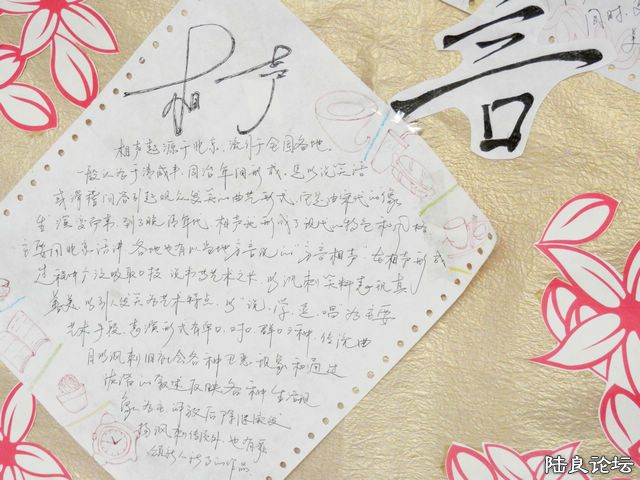 相声
言
同时
美
相声起源于北京，流行于全国各地。
一般认为于清咸丰、同治年间形成。是以说笑话
或滑稽问答引起观众发笑的曲艺形式。它是由宋代的像
生演变而来。到了晚清年代，相声就形成了现代的特色和风格
主要用北京话讲，各地也有以当地方言说的"方言相声"。在相声形成
过程中广泛吸取口技、说书等艺术之长，以讽刺笑料表现真
善美，以引人发笑为艺术特点，以"说、学、逗、唱"为主要
艺术手段。表演形式有单口、对口、群口三种。传统曲
目以讽刺旧社会各种丑恶现象和通过
诙谐的叙述反映各种生活现
象为主，解放后除继续发
扬讽刺传统外，也有歌
颂新人新事的作品
陆良论坛